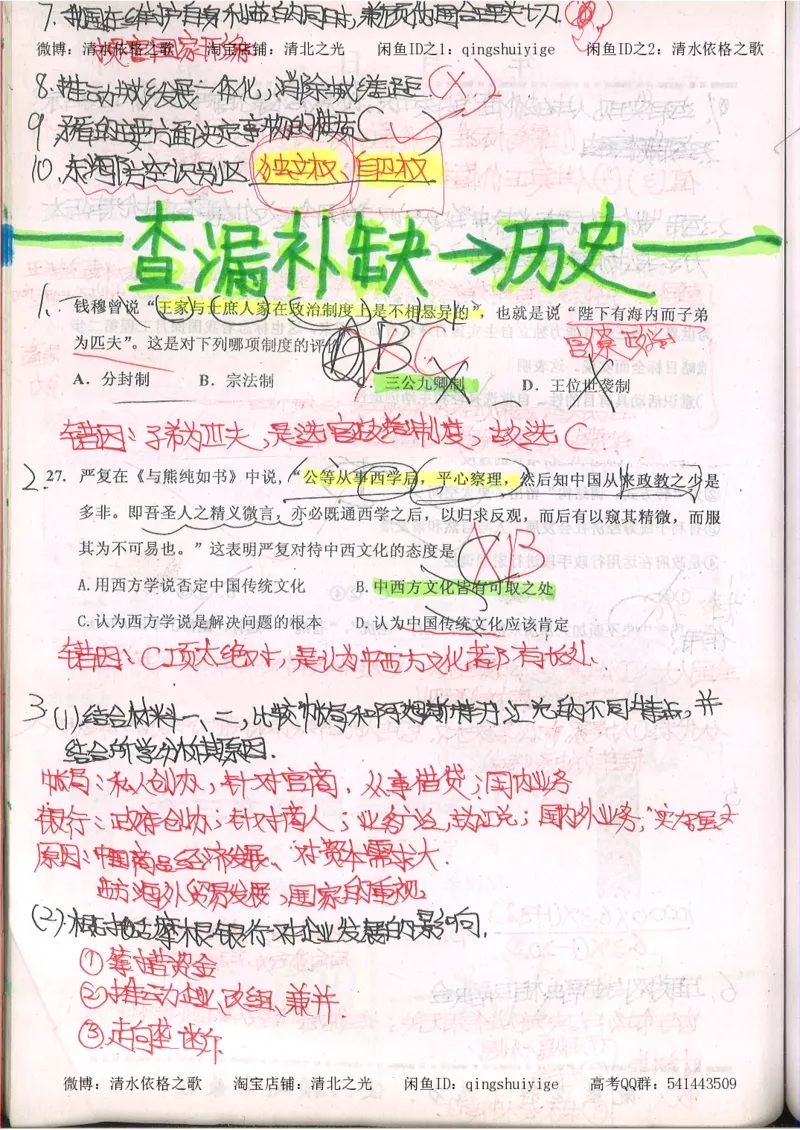 7.我国在维护自身利益的同时,兼顾他国合理关切.
微博：清水依格之歌 淘宝店铺：清北之光 闲鱼ID之1：qingshuiyige 闲鱼ID之2：清水依格之歌
8.推动城乡发展一体化,消除城乡差距(X)
9.矛盾的主要方面决定事物的性质(✓)
10.东海防空识别区 独立权、自卫权
查漏补缺→历史
1. 钱穆曾说“王家与士庶人家在政治制度上是不相悬异的”，也就是说“陛下有海内而子弟
为匹夫”。这是对下列哪项制度的评 BC 官察政学
A．分封制 B．宗法制 C．三公九卿制 D．王位世袭制
错因:子弟为匹夫,是选官政差制度,故选C
2. 27．严复在《与熊纯如书》中说，“公等从事西学后，平心察理，然后知中国从来政教之少是
多非。即吾圣人之精义微言，亦必既通西学之后，以归求反观，而后有以窥其精微，而服
其为不可易也。”这表明严复对待中西文化的态度是 B
A.用西方学说否定中国传统文化 B.中西方文化皆有可取之处
C.认为西方学说是解决问题的根本 D.认为中国传统文化应该肯定
错因:C项太绝对,是认为中西方文化都有长处.
3 (1)结合材料一、二,比较帐局和阿姆斯特丹汇兑的不同特点,并
结合所学分析其原因.
帐局:私人创办,针对官商,从事借贷;国内业务
银行:政府创办;针对商人;业务广泛,动汇兑;国内外业务;实力强大
原因:中国商品经济发展、对资本需求大.
西方海外贸易发展,国家的重视
(2)概括摩根银行对企业发展的影响.
①筹措资金
②推动企业改组、兼并.
③走向世界
微博：清水依格之歌 淘宝店铺：清北之光 闲鱼ID：qingshuiyige 高考QQ群：541443509